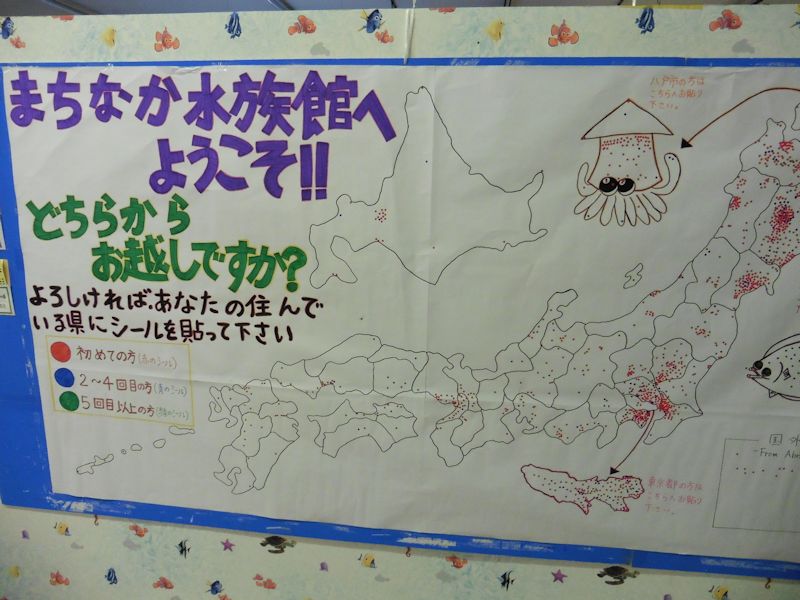 まちなか水族館へ
ようこそ!!
どちらから
お越しですか?
よろしければ、あなたの住んで
いる県にシールを貼って下さい
初めての方(赤のシール)
2～4回目の方(青のシール)
5回目以上の方(緑のシール)
八戸市の方は
こちらへお貼り
下さい。
東京都の方は
こちらへお貼り
下さい。
国外
From Abr